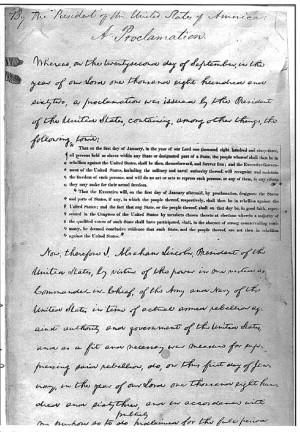 By the President of the United States of America:
A Proclamation.
Whereas, on the twenty second day of September, in the
year of our Lord one thousand eight hundred and
sixty two, a proclamation was issued by the President
of the United States, containing, among other things, the
following, towit:
"That on the first day of January, in the year of our Lord one thousand eight hundred and sixty-three,
all persons held as slaves within any State or designated part of a State, the people whereof shall then be in
rebellion against the United States, shall be then, thenceforward, and forever free; and the Executive Govern-
ment of the United States, including the military and naval authority thereof, will recognize and maintain
the freedom of such persons, and will do no act or acts to repress such persons, or any of them, in any efforts
they may make for their actual freedom.
"That the Executive will, on the first day of January aforesaid, by proclamation, designate the States
and parts of States, if any, in which the people thereof, respectively, shall then be in rebellion against the
United States; and the fact that any State, or the people thereof, shall on that day be in good faith, repre-
sented in the Congress of the United States by members chosen thereto at elections wherein a majority of
the qualified voters of such State shall have participated, shall, in the absence of strong countervailing testi-
mony, be deemed conclusive evidence that such State, and the people thereof, are not then in rebellion
against the United States."
Now, therefore I, Abraham Lincoln, President of the
United States, by virtue of the power in me vested as
Commander-in-Chief, of the Army and Navy of the
United States in time of actual armed rebellion ag-
ainst authority and government of the United States,
and as a fit and necessary war measure for sup-
pressing said rebellion, do, on this first day of Jan-
uary, in the year of our Lord one thousand eight hun-
dred and sixty three, and in accordance with
publicly
my purpose so to do proclaimed for the full period